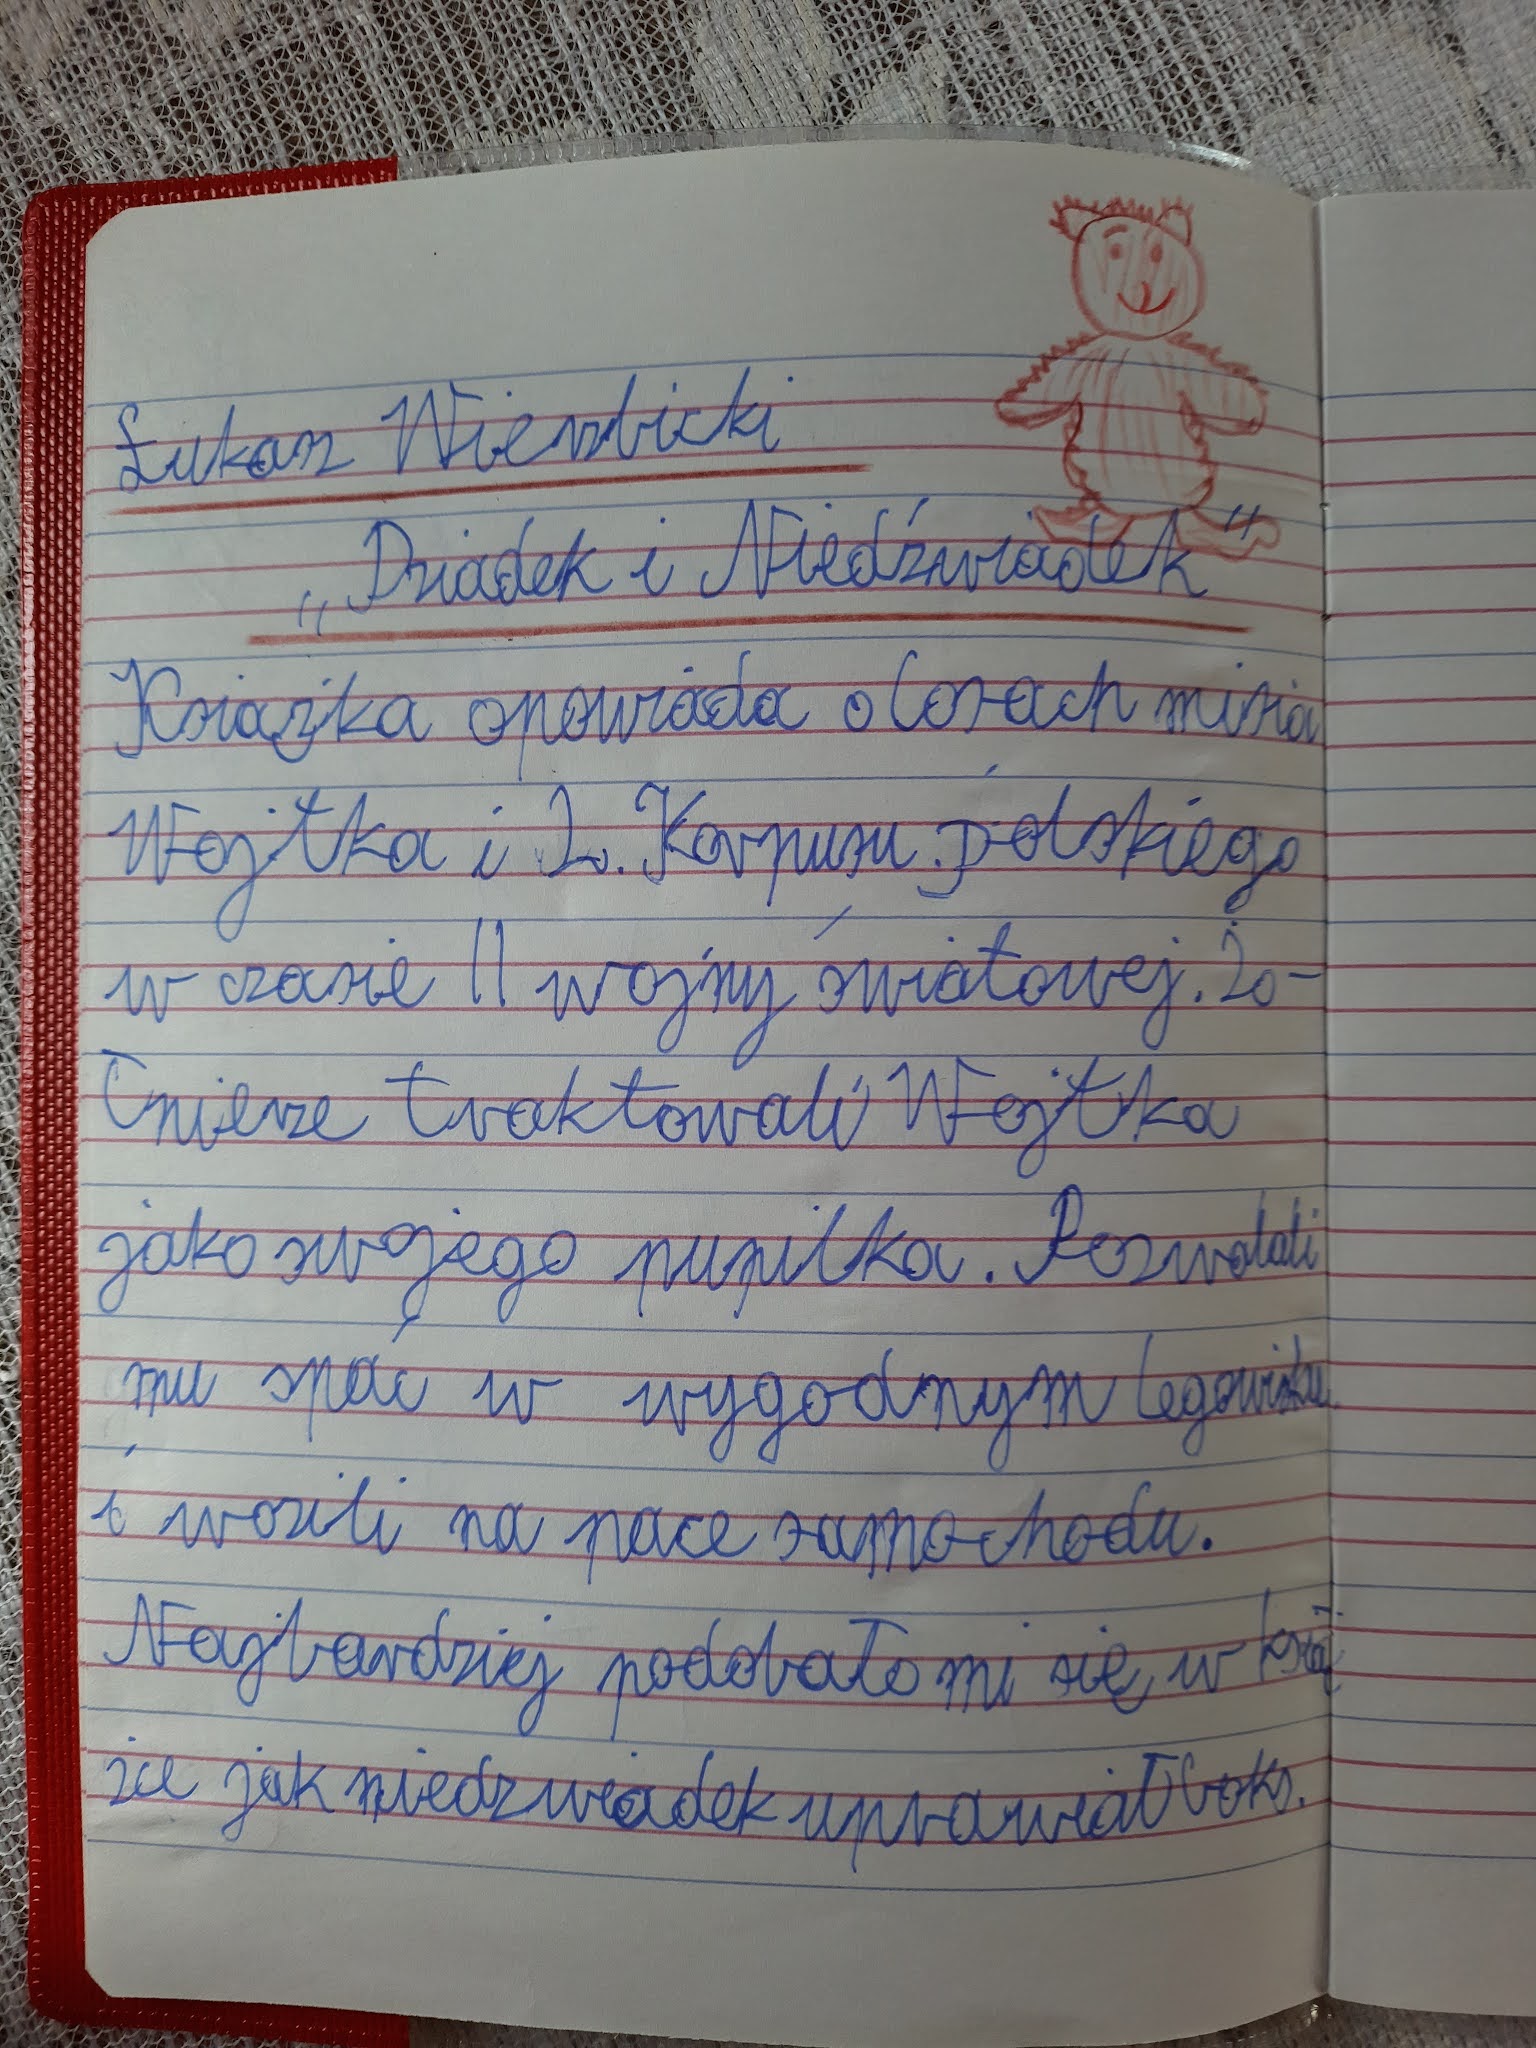 Łukasz Wierzbicki
„Dziadek i Niedźwiadek"
Książka opowiada o losach misia
Wojtka i 2. Korpusu polskiego
w czasie II wojny światowej. Żo-
łnierze traktowali Wojtka
jako swojego pupilka. Pozwalali
mu spać w wygodnym legowisku
i wozili na pace samochodu.
Najbardziej podobało mi się w ksią
żce jak niedzwiadek uprawiał boks.